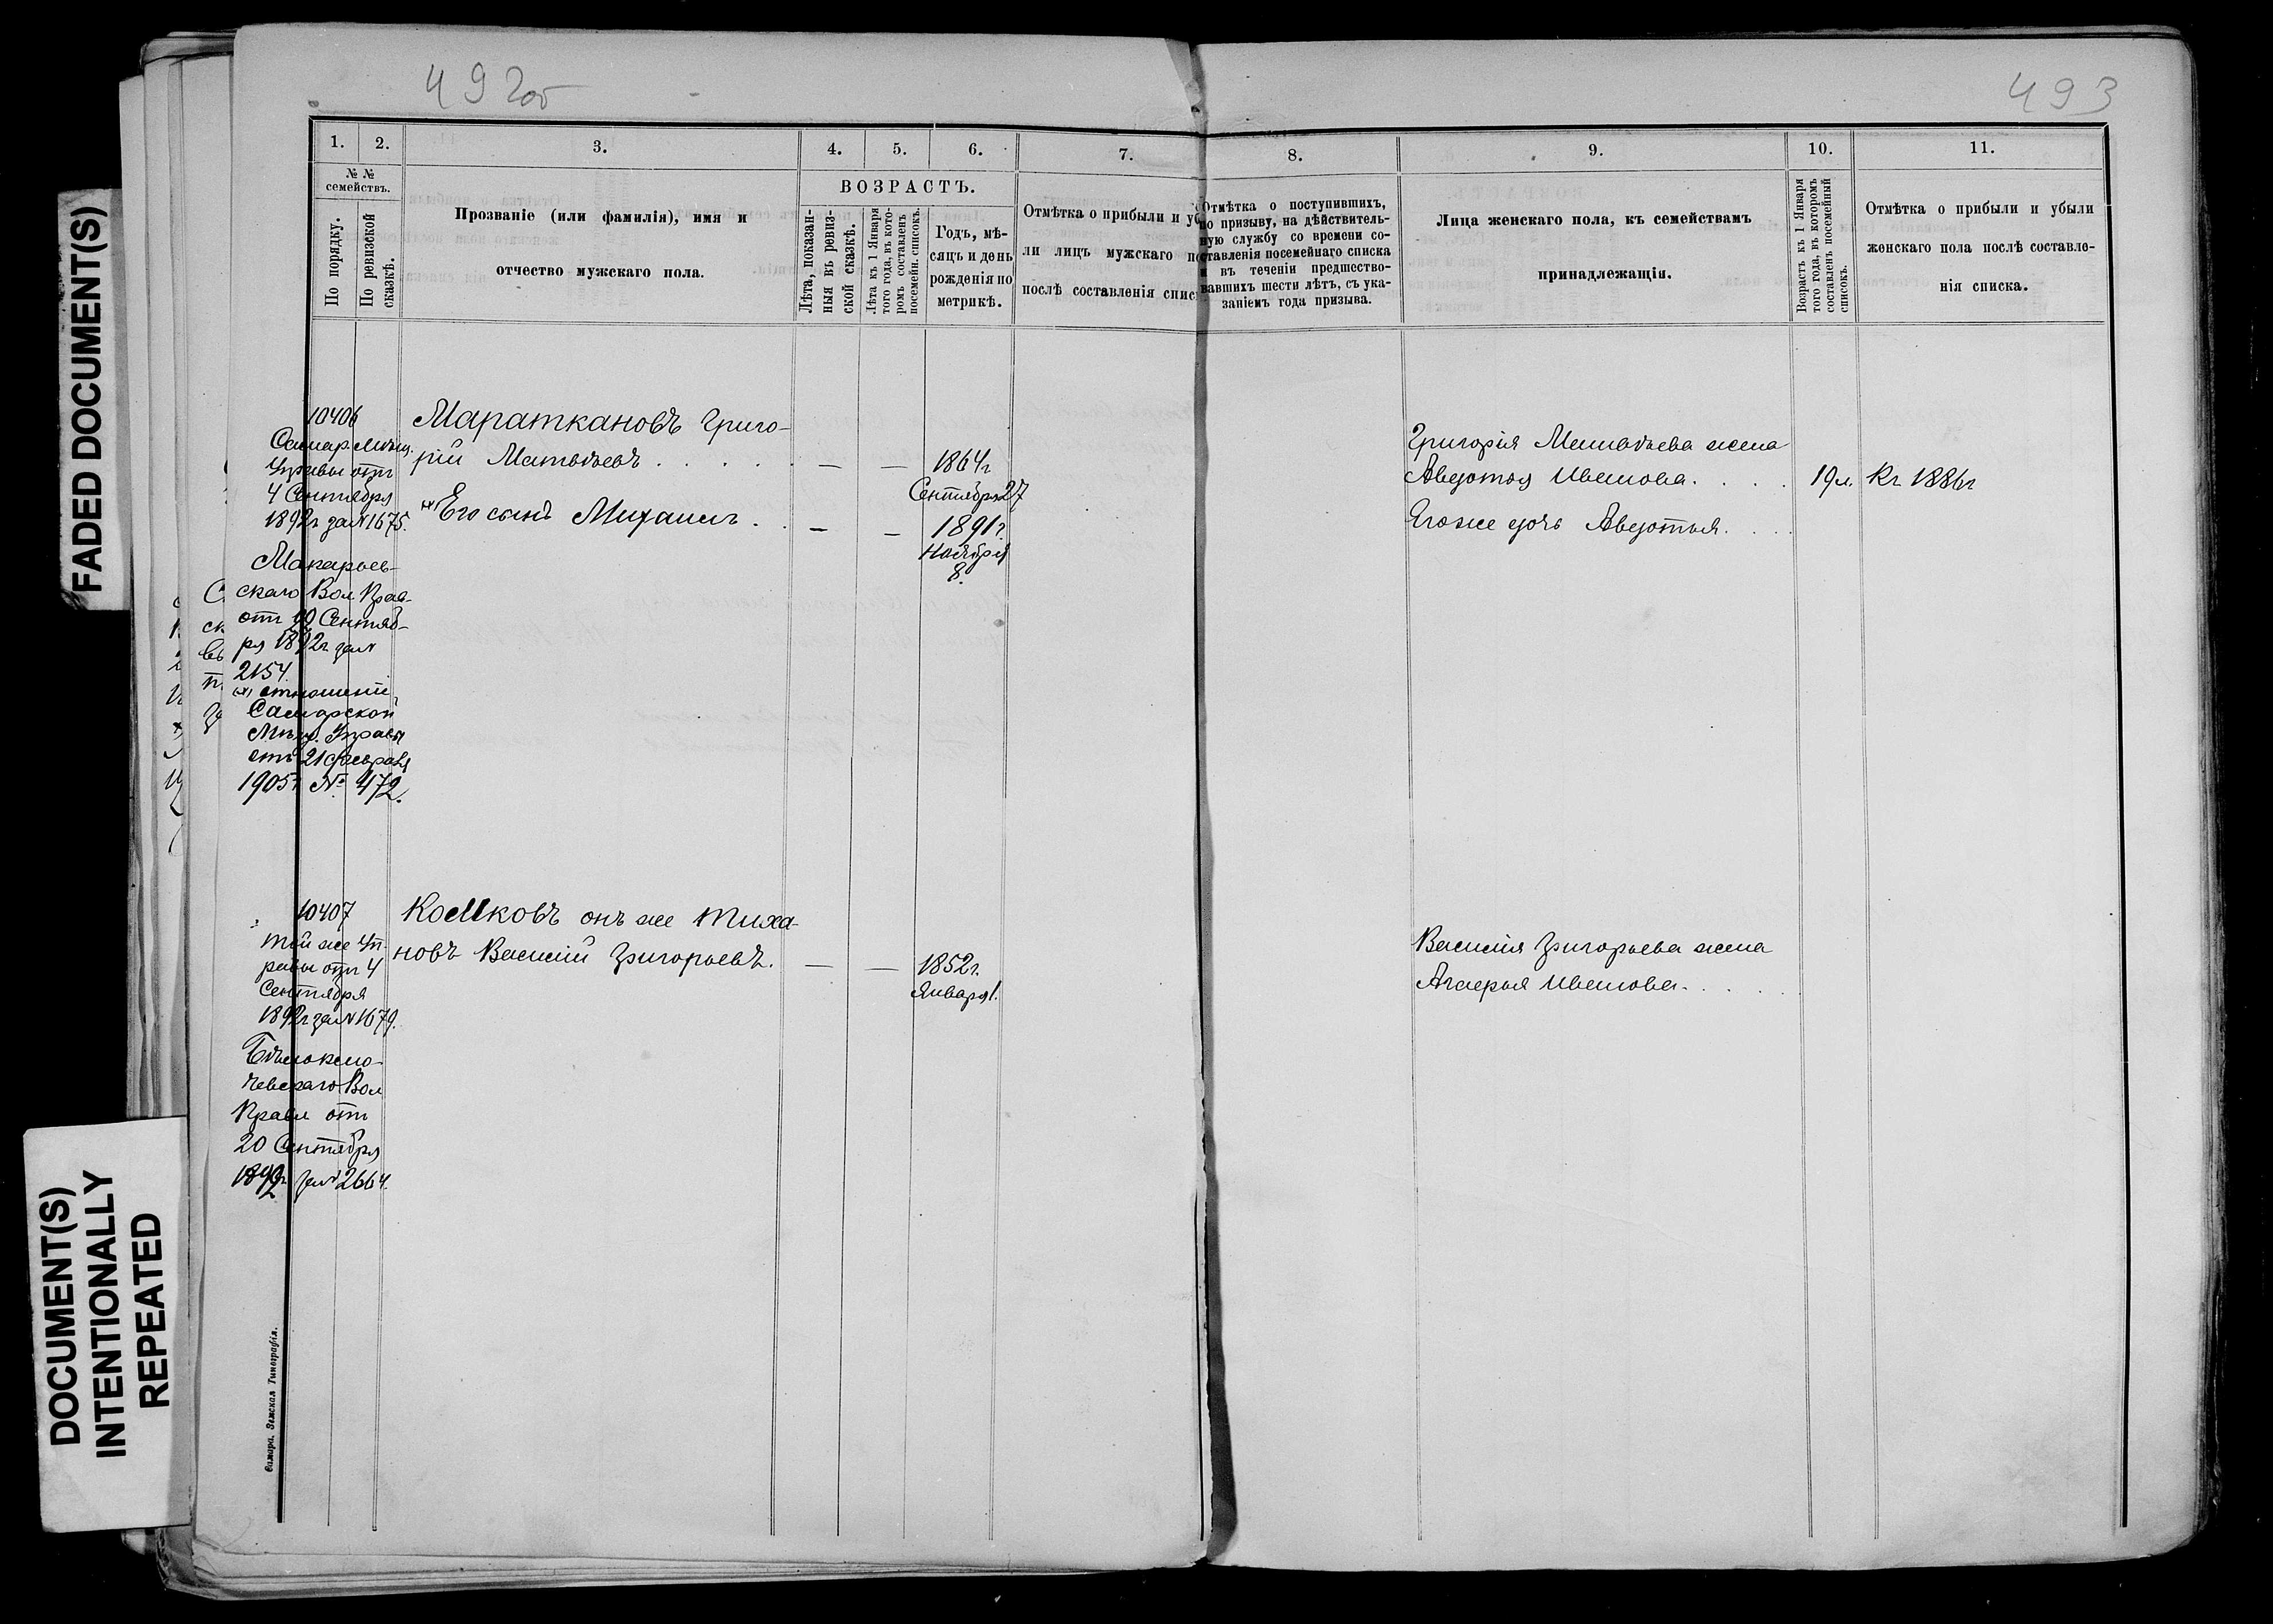 FADED DOCUMENT(S)
DOCUMENT(S)
INTENTIONALLY
REPEATED
492об
493
1.
2.
3.
4.
5.
6.
7.
8.
9.
10.
11.
№ №
семействъ.
По порядку.
По ревизской
сказкѣ.
Прозваніе (или фамилія), имя и
отчество мужскаго пола.
ВОЗРАСТЪ.
Лѣта, показан-
ныя въ ревиз-
ской сказкѣ.
Лѣта къ 1 Января
того года, въ кото-
ромъ составленъ
посемейн. списокъ.
Годъ, мѣ-
сяцъ и день
рожденія по
метрикѣ.
Отмѣтка о прибыли и уб
ли лицъ мужскаго по
послѣ составленія спис
Отмѣтка о поступившихъ,
по призыву, на дѣйствитель-
ную службу со времени со-
ставленія посемейнаго списка
и въ теченіи предшество-
вавшихъ шести лѣтъ, съ ука-
заніемъ года призыва.
Лица женскаго пола, къ семействамъ
принадлежащія.
Возрастъ къ 1 Января
того года, въ которомъ
составленъ посемейный
списокъ.
Отмѣтка о прибыли и убыли
женскаго пола послѣ составле-
нія списка.
10406
Самар. Мѣщ.
Управы отъ
4 Сентября
1892г за № 1675.
Макарьев-
скаго Вол. Прав-
отъ 10 Сентяб-
ря 1892г за №
2154.
(х) отношеніе
Самарской
Мѣщ. Управы
отъ 21 февраля
1905г № 472.
Мараткановъ Григо-
рій Матвѣевъ . . . . .
— — 1864г
Сентября 27
(х) Его сынъ Михаилъ . .
— — 1891г.
Ноября
8.
Григорія Матвѣева жена
Авдотья Иванова. . . . 19л. Къ 1886г
Его же дочь Авдотья. . . .
10407
той же Уп-
равы отъ 4
Сентября
1892г за № 1679.
Бѣлоклю-
чевскаго Вол
Правл отъ
20 Сентября
1892г за № 2664.
Комковъ онъ же Тиха-
новъ Василій Григорьевъ.
— — 1852г.
Января 1.
Василія Григорьева жена
Агаерья Иванова. . . . .
Самара. Земская Типографія.